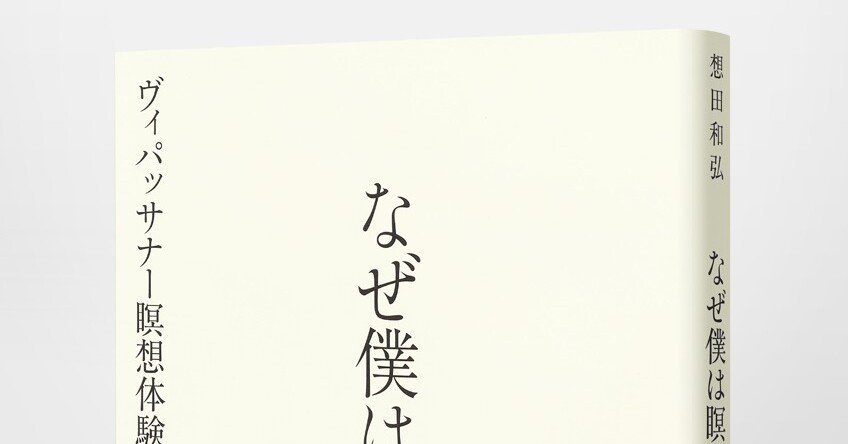 想田和弘
なぜ僕は瞑
なぜ僕は
ヴィパッサナー瞑想体験